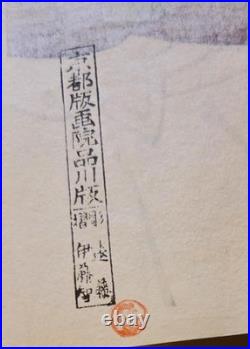 京都版画院品川版
彫 遠藤
摺 伊藤智
ebay.com